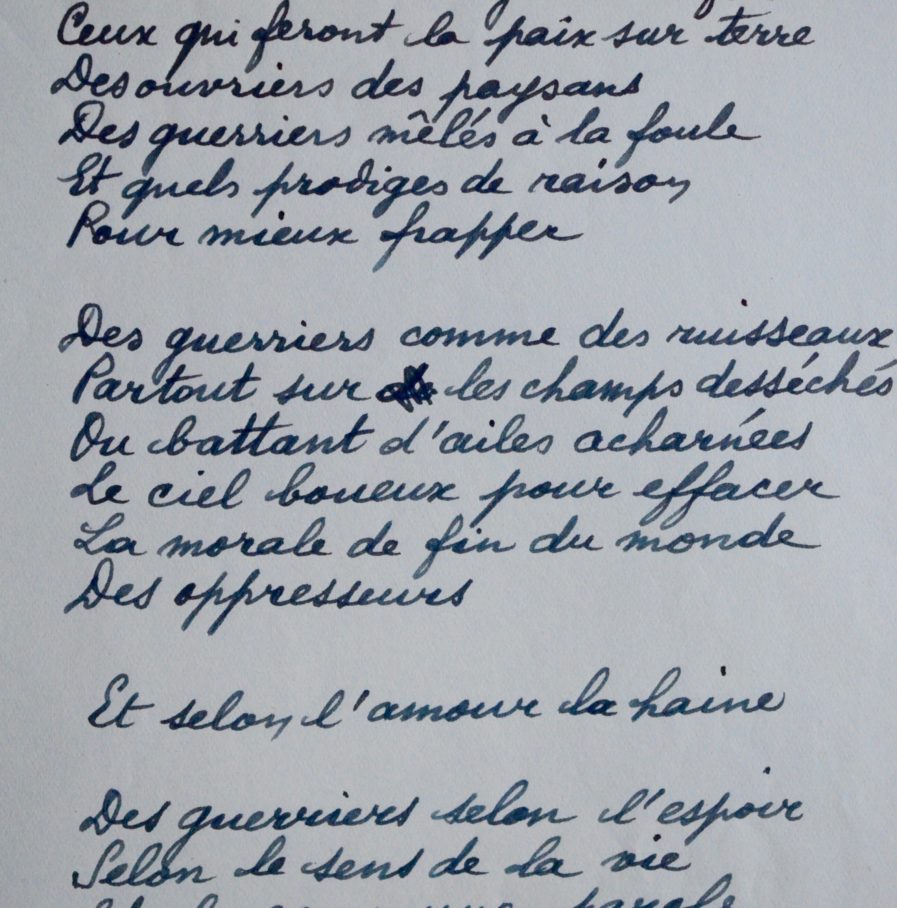 Ceux qui feront la paix sur terre
Des ouvriers des paysans
Des guerriers mêlés à la foule
Et quels prodiges de raison
Pour mieux frapper
Des guerriers comme des ruisseaux
Partout sur les champs desséchés
Ou battant d'ailes acharnées
Le ciel boueux pour effacer
La morale de fin du monde
Des oppresseurs
Et selon l'amour la haine
Des guerriers selon l'espoir
Selon le sens de la vie
parole